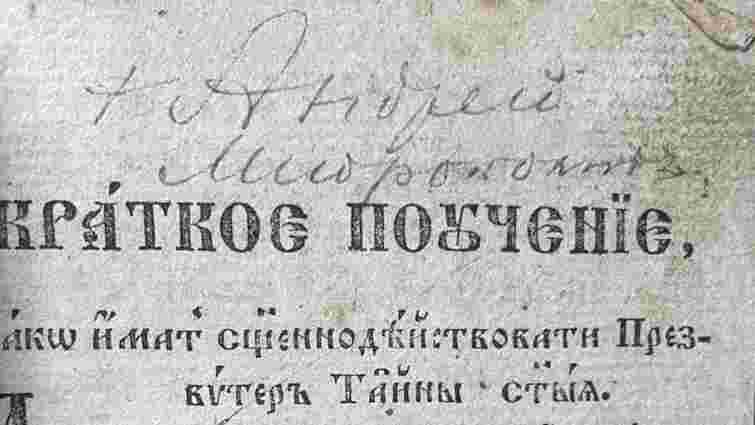 + Андрей
Миропопитъ,
КРА́ТКОЕ ПОꙊЧЕНЇЕ,
а́кѡ и҆́мат̾ сщ҃еннодѣ́йствовати През-
вѵ́теръ Та̑йны ст҃ы́ѧ.